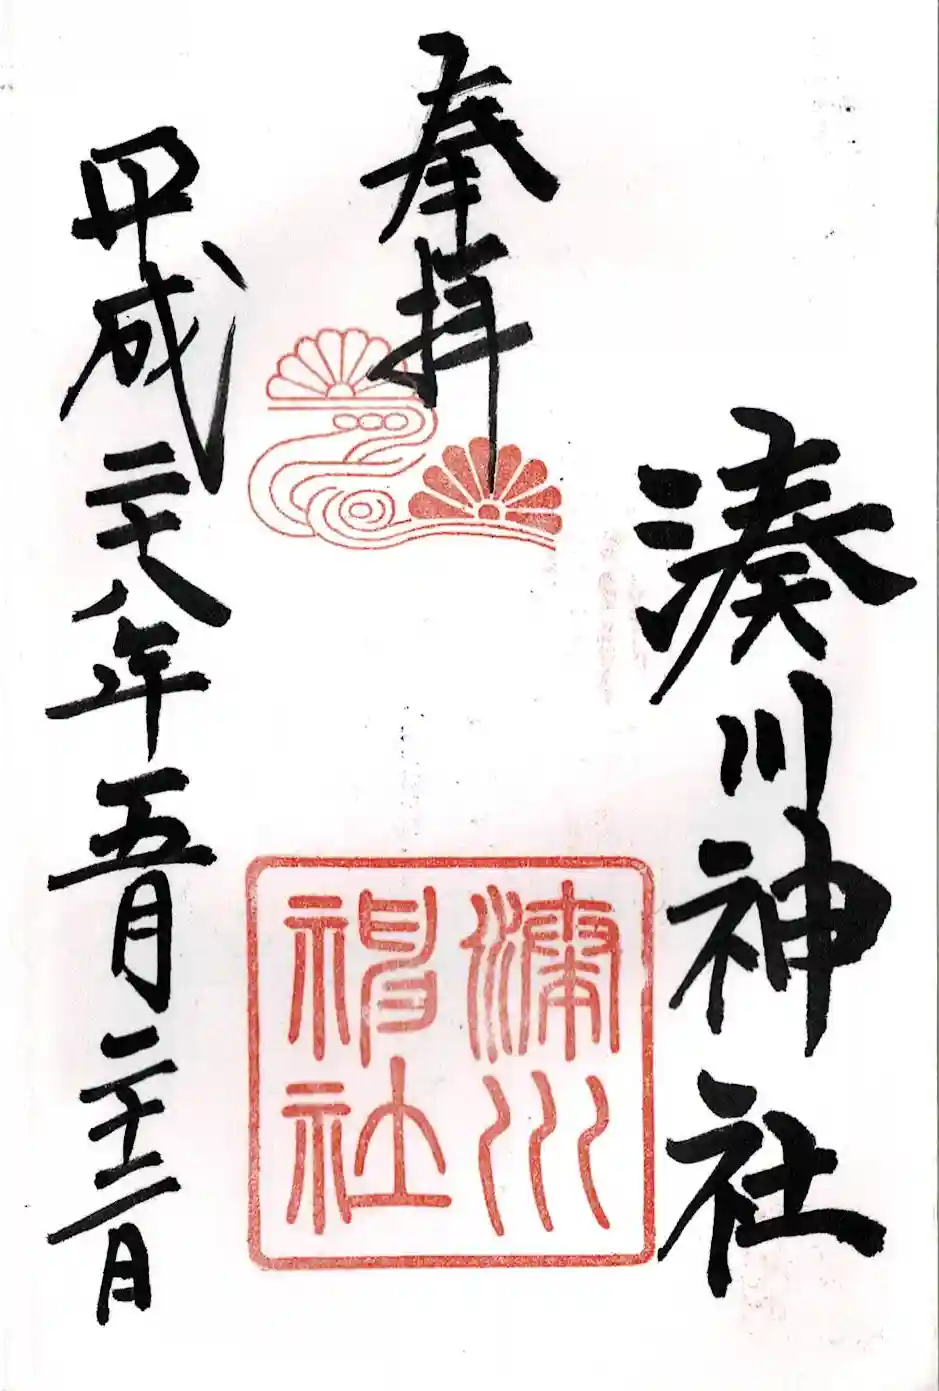 湊川神社
奉拝
湊川
神社
平成二十八年五月二十二日